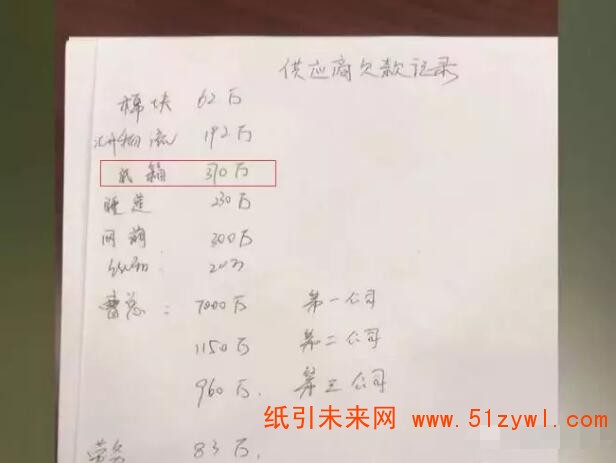 供应商欠款记录
棉块 62万
汇升物流 192万
纸箱 370万
睡莲 230万
网销 300万
20万
曹总: 7000万 第一公司
1150万 第二公司
960万. 第三公司
劳务 83万.
纸引未来网 www.51zywl.com